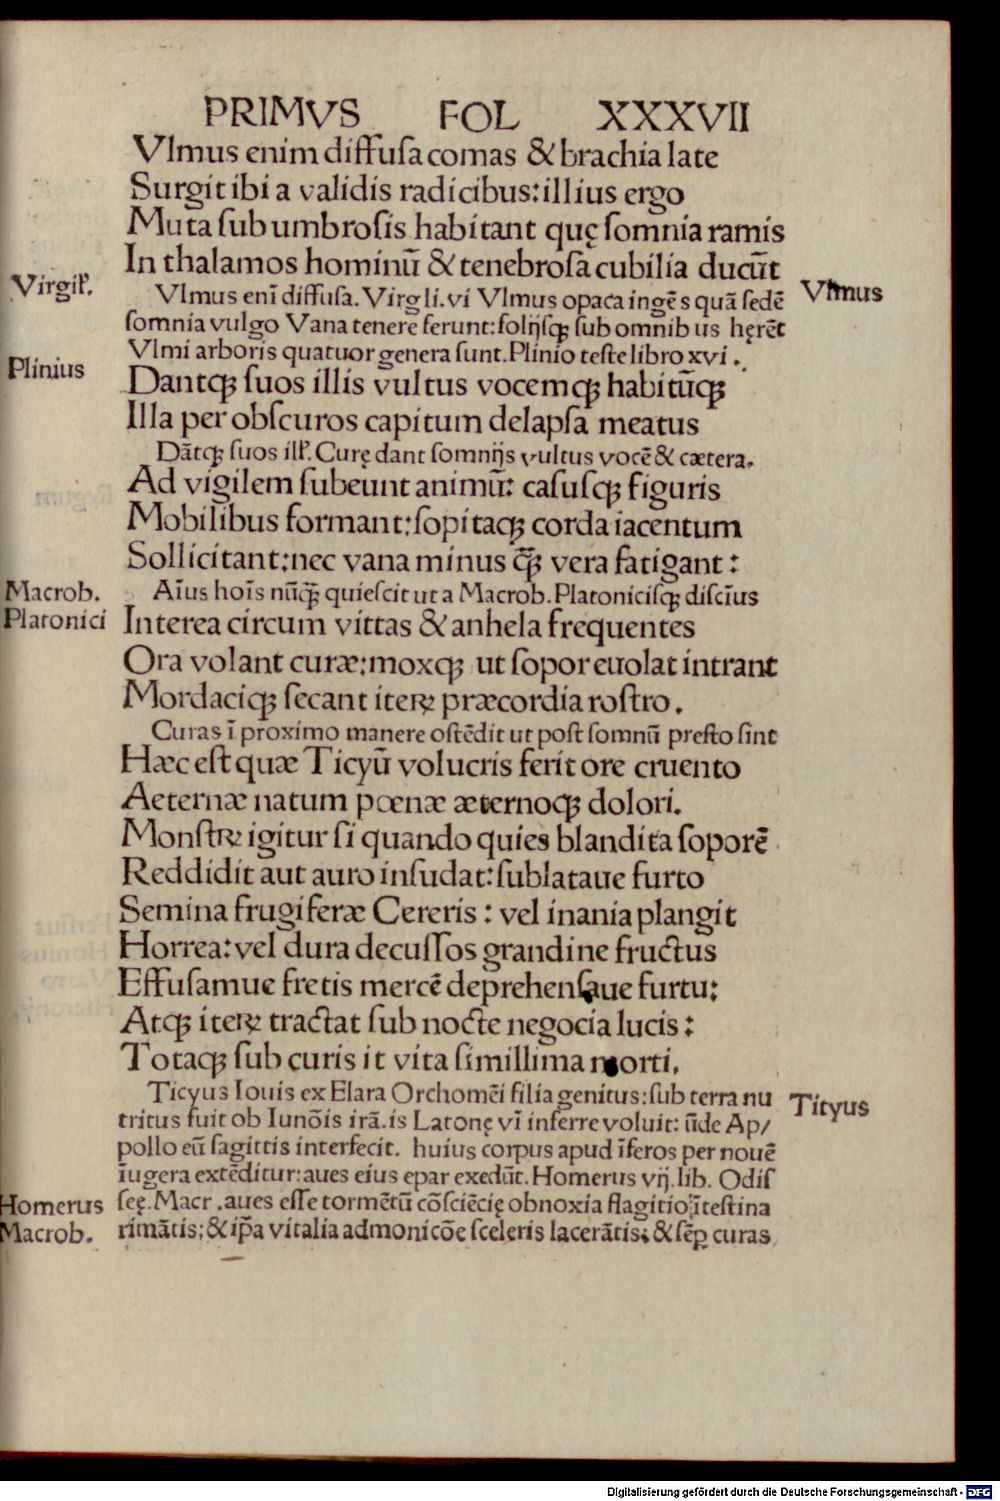 PRIMVS FOL XXXVII
Vlmus enim diffusa comas & brachia late
Surgit ibi a validis radicibus: illius ergo
Muta sub umbrosis habitant quę somnia ramis
In thalamos hominū & tenebrosa cubilia ducūt
Virgil̓.
Vlmus enī diffusa. Virg li. vi Vlmus opaca ingēs quā sedē
Vlmus
somnia vulgo Vana tenere ferunt: folijsq; sub omnibus hęrēt
Vlmi arboris quatuor genera sunt. Plinio teste libro xvi.
Plinius
Dantq; suos illis vultus vocemq; habitūq;
Illa per obscuros capitum delapsa meatus
Dātq; suos ill̓. Curę dant somnijs vultus vocē & cætera.
Ad vigilem subeunt animū: casusq; figuris
Mobilibus formant: sopitaq; corda iacentum
Sollicitant: nec vana minus q̄; vera fatigant:
Macrob.
Aīus hoīs nūq̄; quiescit ut a Macrob. Platonicisq; discīus
Platonici
Interea circum vittas & anhela frequentes
Ora volant curæ: moxq; ut sopor euolat intrant
Mordaciq; secant iteꝝ præcordia rostro.
Curas ī proximo manere ostēdit ut post somnū presto sint
Hæc est quæ Ticyū volucris ferit ore cruento
Aeternæ natum pœnæ æternoq; dolori.
Monstrꝝ igitur si quando quies blandita soporē
Reddidit aut auro insudat: sublataue furto
Semina frugiferæ Cereris: vel inania plangit
Horrea: vel dura decussos grandine fructus
Effusamue fretis mercē deprehensaue furtu:
Atq; iteꝝ tractat sub nocte negocia lucis:
Totaq; sub curis it vita simillima morti.
Ticyus Iouis ex Elara Orchomēi filia genitus: sub terra nu
Tityus
tritus fuit ob Iunōis irā. is Latonę vī inferre voluit: ūde Ap/
pollo eū sagittis interfecit. huius corpus apud īferos per nouē
iugera extēditur: aues eius epar exedūt. Homerus vij. lib. Odis
Homerus
seę. Macr. aues esse tormētū cōsciēcię obnoxia flagitio ītestina
Macrob.
rimātis: & ip̄a vitalia admonicōe sceleris lacerātis: & sēꝑ curas
Digitalisierung gefördert durch die Deutsche Forschungsgemeinschaft - DFG